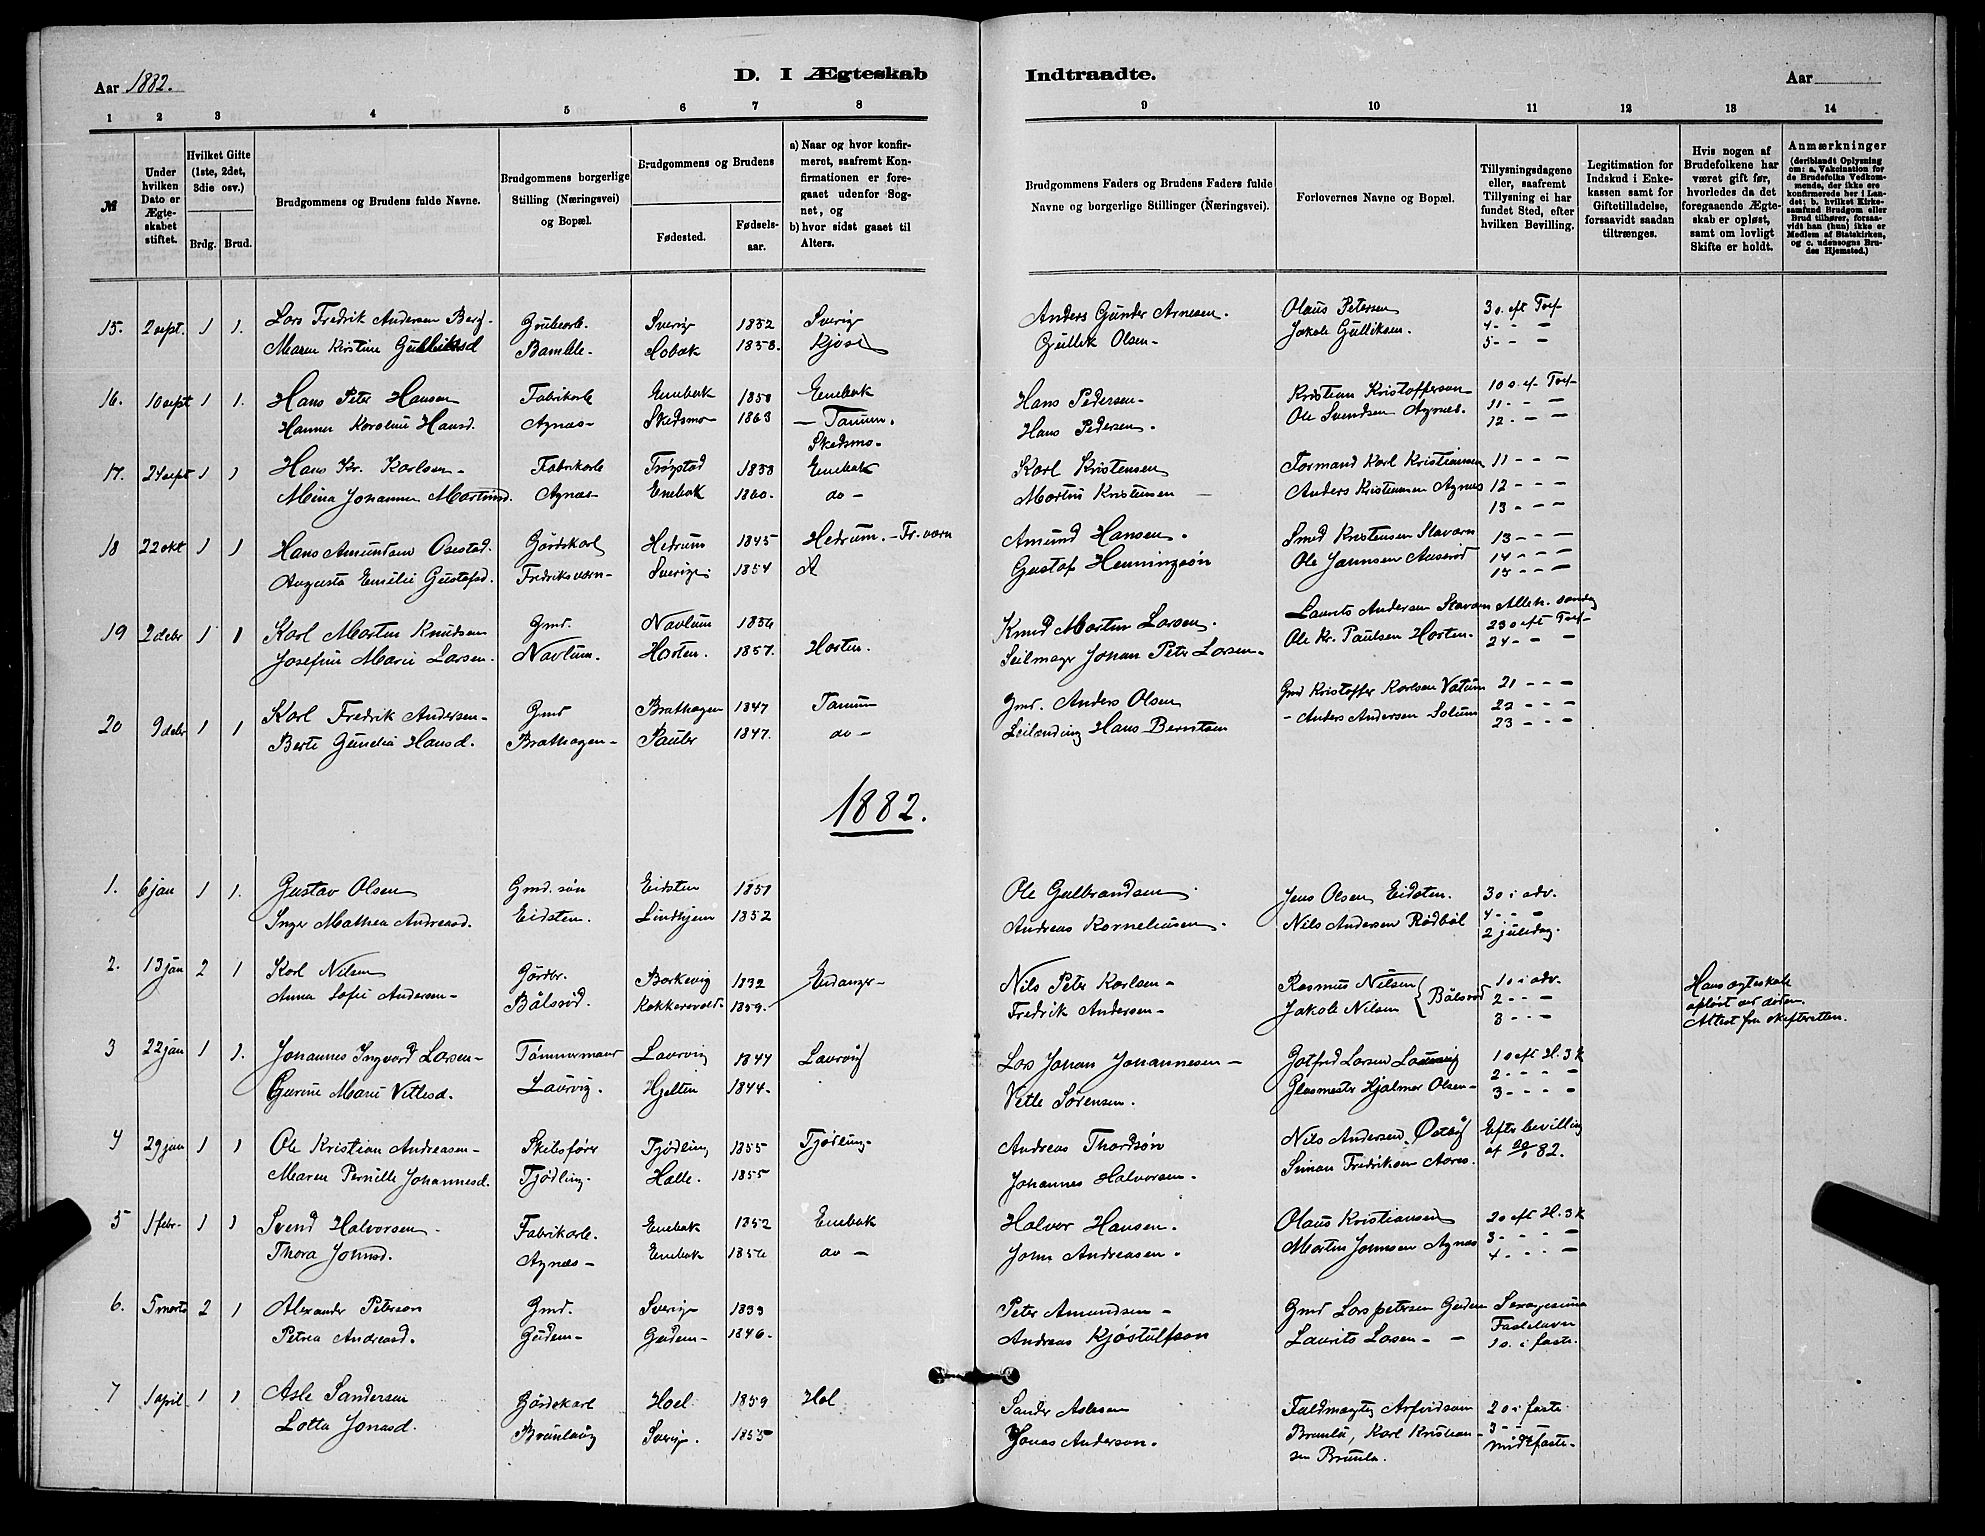 Aar 1882.
D. I Ægteskab
Indtraadte.
Aar
1 2 3 4 5 6 7 8 9 10 11 12 13 14
№
Under hvilken Dato er Ægteskabet stiftet.
Hvilket Gifte (1ste, 2det, 3die osv.)
Brdg. Brud.
Brudgommens og Brudens fulde Navne.
Brudgommens borgerlige Stilling (Næringsvei) og Bopæl.
Brudgommens og Brudens
Fødested.
Fødselsaar.
a) Naar og hvor konfirmeret, saafremt Konfirmationen er foregaaet udenfor Sognet, og
b) hvor sidst gaaet til Alters.
Brudgommens Faders og Brudens Faders fulde Navne og borgerlige Stillinger (Næringsvei).
Forlovernes Navne og Bopæl.
Tillysningsdagene eller, saafremt Tillysning ei har fundet Sted, efter hvilken Bevilling.
Legitimation for Indskud i Enkekassen samt for Giftetilladelse, forsaavidt saadan tiltrænges.
Hvis nogen af Brudefolkene har været gift før, hvorledes da det foregaaende Ægteskab er opløst, samt om lovligt Skifte er holdt.
Anmærkninger
(deriblandt Oplysning om: a. Vakcination for de Brudefolks Vedkommende, der ikke ere konfirmerede her i Landet; b. hvilket Kirkesamfund Brudgom eller Brud tilhører, forsaavidt han (hun) ikke er Medlem af Statskirken, og c. udensogns Brudes Hjemsted.)
15. 2 sept. 1 1. Lars Fredrik Andersen Berg. Grubearb. Sverig 1852 Sverig Anders Gunder Arnesen. Olaus Petersen 3 s. eft Tref
Maren Kirstine Gulliksd Bamble. Hobæk 1858. Kjose Gullik Olsen - Jakob Gulliksen. 4 - - -
5 - - -
16. 10 sept 1 1. Hans Peter Hansen Fabrikarb Enebak 1850 Enebak Hans Pedersen - Kristian Kristoffersen 10 s. ef Tref
Hanna Karoline Hansd. Agnæs - Skedsmo 1863 - Tanum. Hans Pedersen. Ole Svendsen Agnes. 11 - - -
Skedsmo. 12 - - -
17. 24 sept 1 1 Hans Kr. Karlsen - Fabrikarb Trøgstad 1853 Enebak Karl Kristensen Formand Karl Kristiansen 11 - - -
Mina Johanna Martinsd. Agnæs - Enebak 1860. do - Martin Kristensen Anders Kristiansen Agnæs 12 - - -
13 - - -
18 22 okt 1 1 Hans Amundsen Osestad. Gårdskarl Hedrum 1845 Hedrum. - Fr.værn Amund Hansen. Smed Kristensen Staværn 13 - - -
Augusta Emelie Gustafsd. Fredriksværn - Sverige 1854 Gustaf Henningsøn Ole Jannsen Aaserød 14 - - -
15 - - -
19 2 debr 1 1 Karl Martin Knudsen Gmd. Navlum 1856 Knud Martin Larsen. Laurits Andersen Staværn Alleh. søndag
Josefine Marie Larsen. Navlum. Horten. 1857. Horten. Seilmager Johan Peter Larsen - Ole Kr. Paulsen Horten. 23 s eft Tref
24 - - -
20 9 debr 1 1 Karl Fredrik Andersen - Gmd Brathagen 1847 Tanum Gmd. Anders Olsen Gmd Kristoffer Karlsen Vatum 21 - - -
Berte Gunelia Hansd. Brathagen - Pauler 1847. do - Leilænding Hans Berntsen - Anders Andersen Solum 22 - - -
23 - - -
1882.
1. 6 jan 1 1. Gustav Olsen Gmd. søn Eidsten 1851 Ole Gulbrandsen Jens Olsen Eidsten. 3 s i adv.
Inger Mathea Andreasd. Eidsten. Lindhjem 1852 Andreas Korneliusen. Nils Andersen Rødbøl 4 - - -
2 juledag.
2. 13 jan 2 1 Karl Nilsen Gårdbr. Barkevig 1832 Eidanger - Nils Peter Karlsen - Rasmus Nilsen 1 s i adv. Hans ægteskab
Anna Sofie Andersen - Bålsrød. Kokkersvold - 1859. Fredrik Andersen - Jakob Nilsen Bålsrød 2 - - - opløst ved døden.
3 - - - Attest fra skifteretten.
3 22 jan 1 1. Johannes Ingvard Larsen - Tømmermand Laurvig 1847 Laurvig Lars Johan Johannesen - Gotfred Larsen Laurvig 1 s eft H. 3 K
Gurine Marie Vetlesd. Laurvig. Hjelten 1844. Vetle Sørensen. Glasmester Hjalmar Olsen - 2 - - - -
3 - - - -
4 29 jan 1 1 Ole Kristian Andreasen - Skibsfører Tjødling 1855 Tjødling. Andreas Thordsøn Nils Andersen Østby Efter bevilling
Maren Pernille Johannesd. Tjødling. Halle. 1855 Johannes Halvorsen. Simon Fredriksen Aares. af 20/1 82.
5 1 febr. 1 1 Svend Halvorsen. Fabrikarb. Enebak 1852 Enebak Halvor Hansen. Olaus Kristiansen 2 s eft H. 3 K
Thora Johnsd. Agnæs - Enebak 1856 do - John Andreasen. Martin Jonnsen Agnæs 3 - - - -
4 - - - -
6. 5 marts 2 1 Alexander Peterson Gmd. Sverige 1839 Peter Amundsen - Gmd Lars Petersen Gudem Sexagesima
Petrea Andreasd. Gudem - Gudem - 1846. Andreas Kjøstulfson Laurits Larsen - - Fastelavn
1 s. i faste.
7 1 april 1 1 Asle Sandersen Gårdskarl Hoel 1859 Hol Sander Aslesen Fuldmægtig Arfvidson 2 s i faste.
Lotta Jonasd. Brunlaug Sverige. 1855 Jonas Anderson. Brunla, Karl Kristian- 3 - - -
sen Brunla. midtfaste.